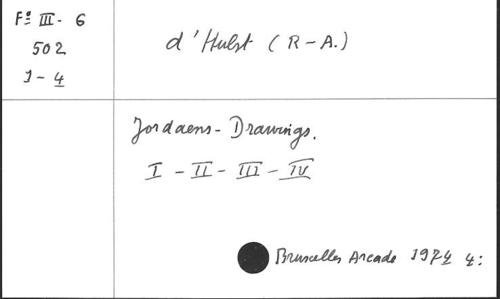 Fº III - 6
502
1 - 4
d'Hulst (R-A.)
Jordaens - Drawings.
I - II - III - IV
Bruxelles Arcade 1974 4: